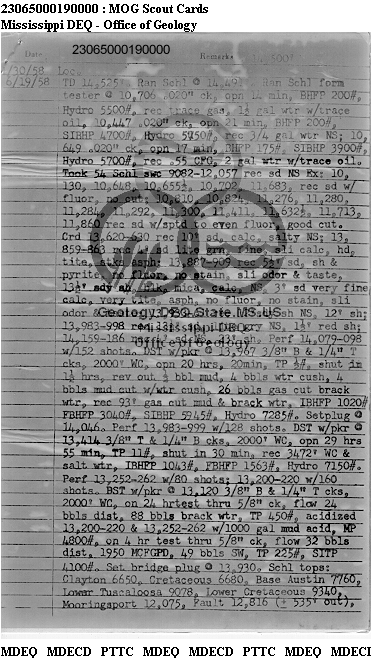 23065000190000 : MOG Scout Cards
Mississippi DEQ - Office of Geology
23065000190000
Date
Remarks:
14,500'
/30/58 Loc.
6/19/58 TD 14,525' Ran Schl @ 14,49 Ran Schl form
tester @ 10,706 .020" ck, opn 14 min, BHFP 200#,
Hydro 5500#, rec trace gas, 1½ gal wtr w/trace
oil, 10,447 .020" ck, opn 21 min, BHFP 200#,
SIBHP 4700#, Hydro 5750#, rec 3/4 gal wtr NS; 10,
649 .020" ck, opn 17 min, BHFP 175#, SIBHP 3900#,
Hydro 5700#, rec .55 CFG, 2 gal wtr w/trace oil.
Took 54 Schl swc 9082-12,057 rec sd NS Ex: 10,
130, 10,648, 10,655½, 10,702, 11,683, rec sd w/
fluor, no cut; 10,810, 10,824, 11,276, 11,280,
11,284, 11,292, 11,300, 11,411, 11,632½, 11,713,
11,860 rec sd w/sptd to even fluor, good cut.
Crd 13,620-630 rec 10' sd, salty NS; 13,
859-863 rec grn, fine, sli calc, hd,
tite, stks asph; 13,887-909 rec sd, sh &
pyrite, no fluor, no stain, sli odor & taste,
13½' sdy sh, blk, mica, calc, NS, 3' sd very fine
calc, very tite, asph, no fluor, no stain, sli
odor & sh NS, 12' sh;
13,983-998 rec NS, 1½' red sh;
14,159-186 Perf 14,079-098
w/152 shots. DST w/pkr @ 13,967 3/8" B & 1/4" T
cks, 2000' WC, opn 20 hrs, 20min, TP ½#, shut in
1½ hrs, rev out ½ bbl mud, 4 bbls wtr cush, 4
bbls mud cut w/wtr cush, 26 bbls gas cut brack
wtr, rec 93' gas cut mud & brack wtr, IBHFP 1020#
FBHFP 3040#, SIBHP 5945#, Hydro 7285#. Setplug @
14,046. Perf 13,983-999 w/128 shots. DST w/pkr @
13,414 3/8" T & 1/4" B cks, 2000' WC, opn 29 hrs
55 min, TP 11#, shut in 30 min, rec 3472' WC &
salt wtr, IBHFP 1043#, FBHFP 1563#, Hydro 7150#.
Perf 13,252-262 w/80 shots; 13,200-220 w/160
shots. BST w/pkr @ 13,120 3/8" B & 1/4" T cks,
2000' WC, on 24 hrtest thru 5/8" ck, flow 24
bbls dist, 88 bbls brack wtr, TP 450#, acidized
13,200-220 & 13,252-262 w/1000 gal mud acid, MP
4800#, on 4 hr test thru 5/8" ck, flow 32 bbls
dist. 1950 MCFGPD, 49 bbls SW, TP 225#, SITP
4100#. Set bridge plug @ 13,930. Schl tops:
Clayton 6650, Cretaceous 6680, Base Austin 7760,
Lower Tuscaloosa 9078, Lower Cretaceous 9340,
Mooringsport 12,075, Fault 12,816 (± 535' out),
Geology.DEQ.State.MS.US
Mississippi DEQ
Office of Geology
MDEQ MDECD PTTC MDEQ MDECD PTTC MDEQ MDECD PTTC MDEQ MDECI